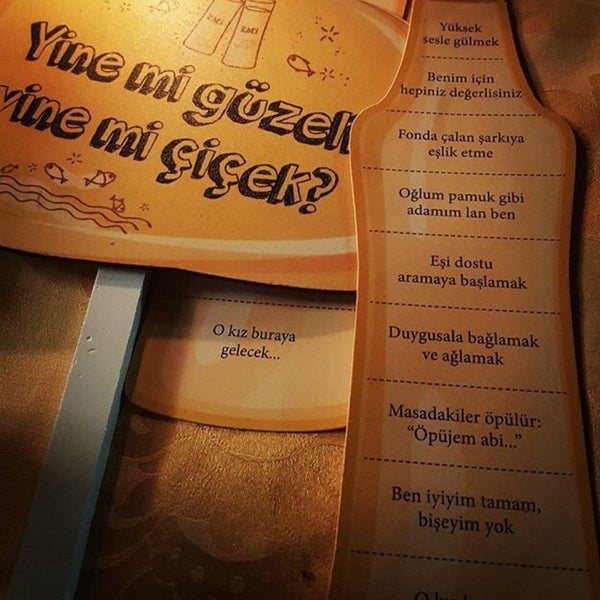 RAKI RAKI
Yine mi güzel
yine mi çiçek?
O kız buraya
gelecek...
Yüksek
sesle gülmek
Benim için
hepiniz değerlisiniz
Fonda çalan şarkıya
eşlik etme
Oğlum pamuk gibi
adamım lan ben
Eşi dostu
aramaya başlamak
Duygusala bağlamak
ve ağlamak
Masadakiler öpülür:
“Öpüjem abi...”
Ben iyiyim tamam,
bişeyim yok